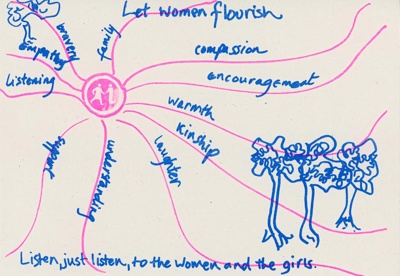 Let women flourish
bravery
family
empathy
compassion
Listening
encouragement
warmth
kinship
laughter
support
understanding
Listen, just listen, to the women and the girls.